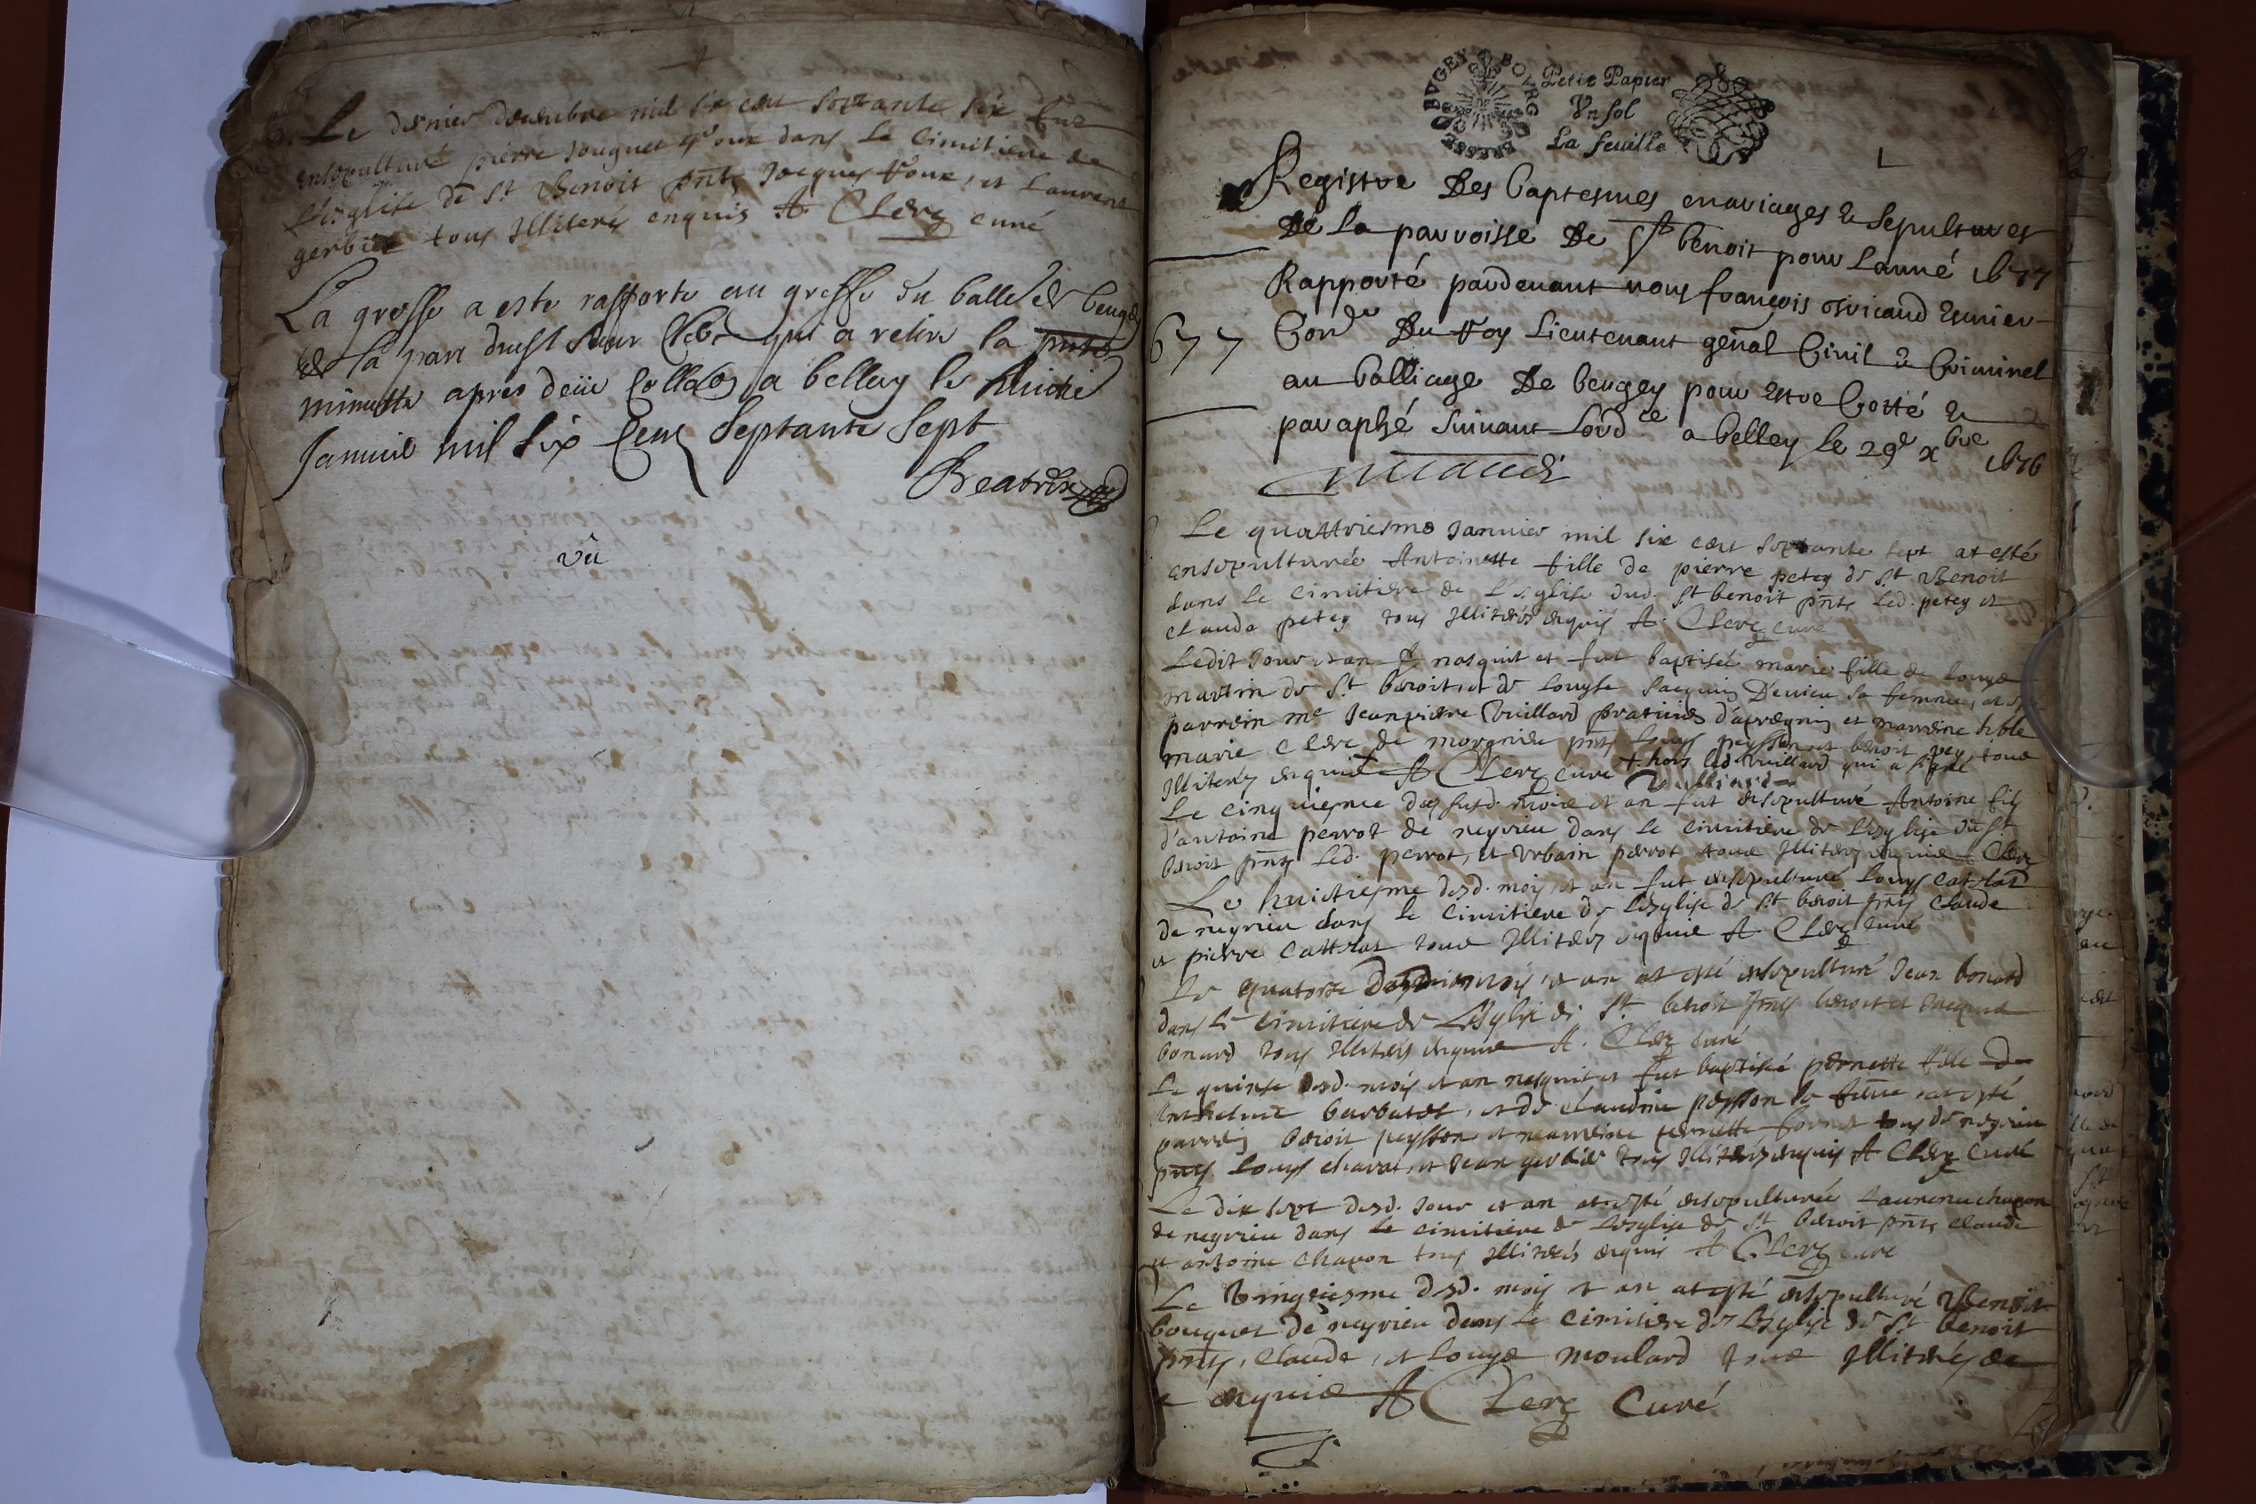 Le dernier decembre mil six cent soixante six fut
ensepulturé pierre Jouguet dans Le Cimitiere de
L'esglise de St Benoit pnts Jacques et Laurent
gerbier tous Illiterés enquis A Clerg curé
La grosse a este rapporte au greffe du balle de beugey
de la part dudst Sieur qui a retire la pnte
minutte apres deüe Colla on a belley le huictie
Janvie mil Six Cent Septante Sept
Beatrix
vû
BVGEY BOVRG BRESSE
Petit Papier
Vn sol
La feuille
1
Registre Des baptesmes mariages & Sepultures
De La parroisse De St benoit pour Lanné 1677
Rapporté pardevant nous françois Escuier
677
Con.er Du Roy Lieutenant genal Civil & Criminel
au balliage De beugey pour Estre Cotté &
paraphé Suivant Lord.ce a belley le 29e xbre 1676
Le quattriesme Janvier mil six cent septante sept at esté
ensepulturée Antoinette fille de pierre petey de St Benoit
dans Le Cimitiere de L'esglise dud. St benoit pnts Led. petey et
Claude petey tous Illiterés enquis A. Clerg curé
Ledit Jour et an nasquit et fut baptisée marie fille de Louys
martin de St benoit et de Louyse Jacquin D'evieu sa femme, at esté
parrein me Jeanpierre Vuillard praticien d'apregnin et marreine hble
marie Clerc de morgnieu pnts Louys peysson et benoit pey tous
Illiterés enquis A Clerg curé + hors led. Vuillard qui a signé
Vulliard
Le Cinquiesme des susd. mois et an fut ensepulturé Antoine fils
d'antoine perrot de neyrieu dans le Cimitiere de L'esglise du St
benoit pnts Led. perrot, et Urbain perrot tous Illiterés enquis Clerg
Le huictiesme desd. mois et an fut ensepulturé Louys
de neyrieu dans le Cimitiere de L'esglise de St benoit pnts Claude
et pierre tous Illiterés enquis A Clerg curé
Le quatorze mois et an at esté ensepulturé Jean bonard
dans le Cimitiere de L'esglise de St benoit pnts benoit et Jacques
bonard tous Illiterés enquis A. Clerg curé
Le quinse desd. mois et an nasquit et fut baptisée pernette fille de
Anthelme barbaret, et de Claudine peysson sa feme at esté
parrein benoit peysson et marreine pernette tous de neyrieu
pnts Louys chavat et Jean gerbier tous Illiterés enquis A Clerg curé
Le dix sept desd. Jour et an at esté ensepulturée chapon
de neyrieu dans le Cimitiere de L'esglise de St benoit pnts Claude
et antoine chapon tous Illiterés enquis A Clerg curé
Le Vingtiesme desd. mois et an at esté ensepulturé Benoit
bouquet de neyrieu dans le Cimitiere de L'esglise de St benoit
pnts, Claude, et Louys moulard tous Illiterés
enquis A Clerg Curé